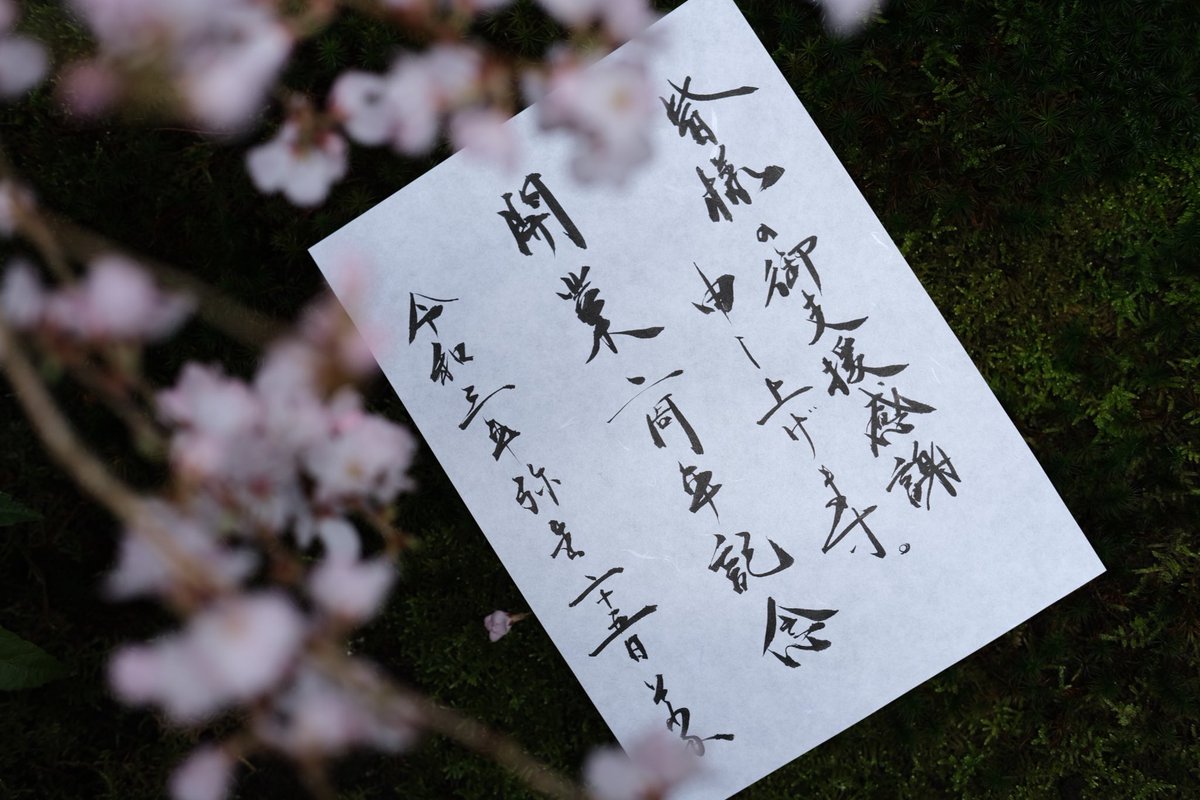 皆様の御支援感謝
申し上げます。
開業二周年記念
令和三年弥生二十五日